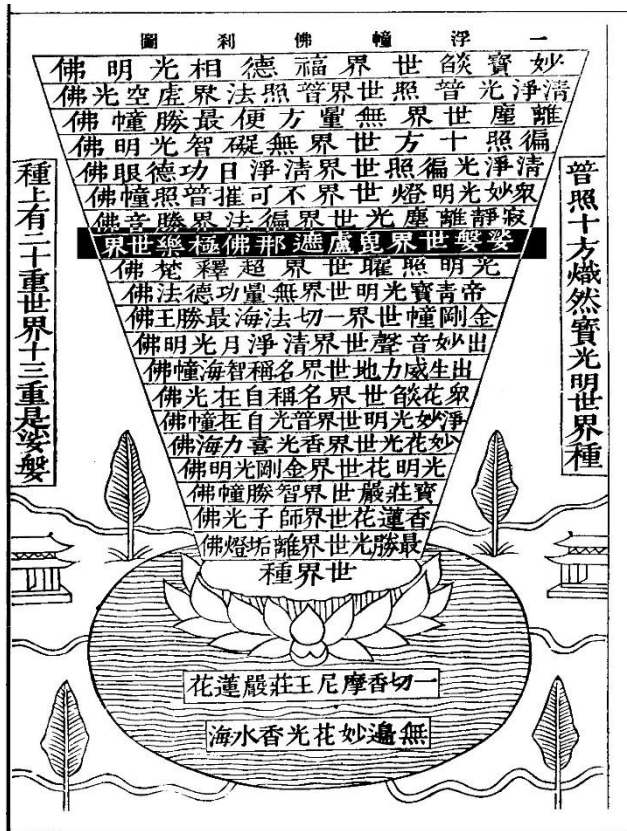 一浮幢佛刹圖
普照十方熾然寶光明世界種
妙寶燄世界福德相光明佛
清淨光普照世界普照法界虛空光佛
離塵世界無量方便最勝幢佛
徧照十方世界無礙智光明佛
清淨光徧照世界清淨日功德眼佛
衆妙光明燈世界不可摧普照幢佛
寂靜離塵光世界徧法界勝音佛
娑媻世界毘盧遮那佛極樂世界
光明照曜世界超釋梵佛
帝青寶光明世界無量功德法佛
金剛幢世界一切法海最勝王佛
出妙音聲世界清淨月光明佛
出生威力地世界名稱智海幢佛
衆花燄世界名稱自在光佛
淨妙光明世界普光自在幢佛
妙花光世界香光喜力海佛
光明花世界金剛光明佛
寶莊嚴世界智勝幢佛
香蓮花世界師子光佛
最勝光世界離垢燈佛
世界種
一切香摩尼王莊嚴蓮花
無邊妙花光香水海
種上有二十重世界十三重是娑媻